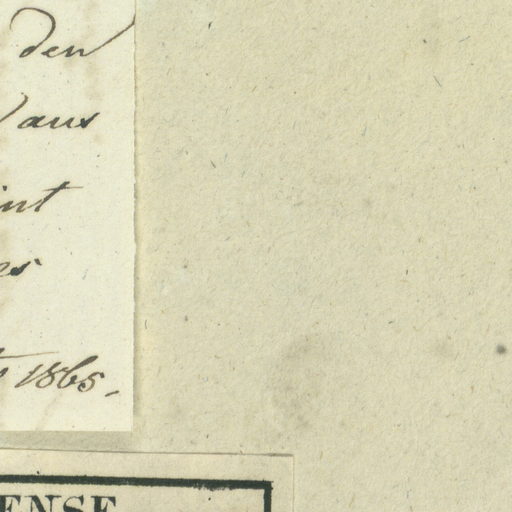 den
aus
int
es
1865.
ENSE